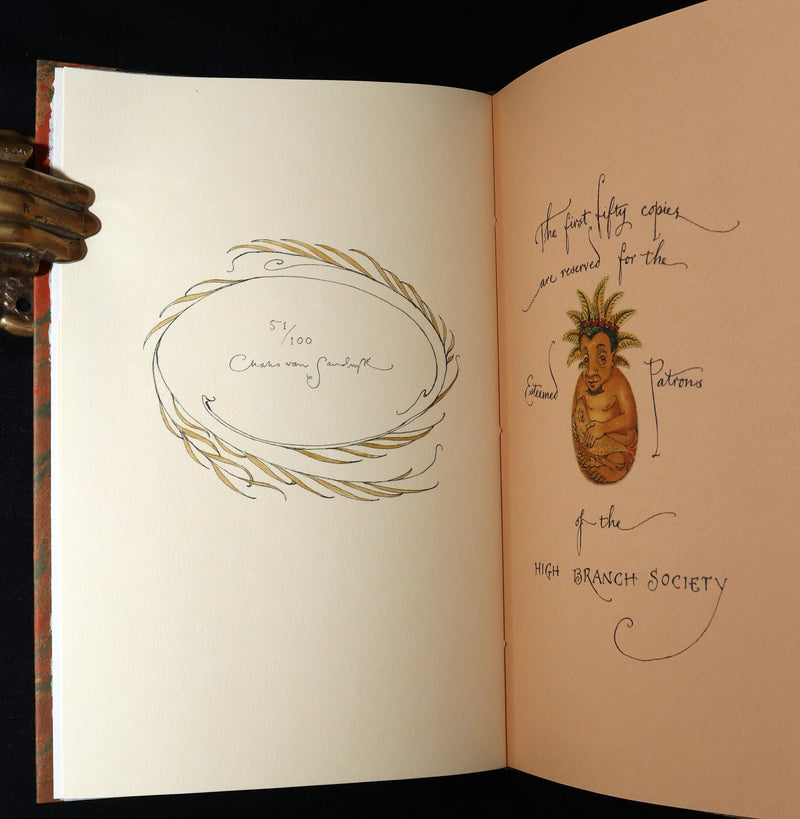 51/100
Charles van Sandwyk
The first fifty copies
are reserved for the
Esteemed Patrons
of the
HIGH BRANCH SOCIETY